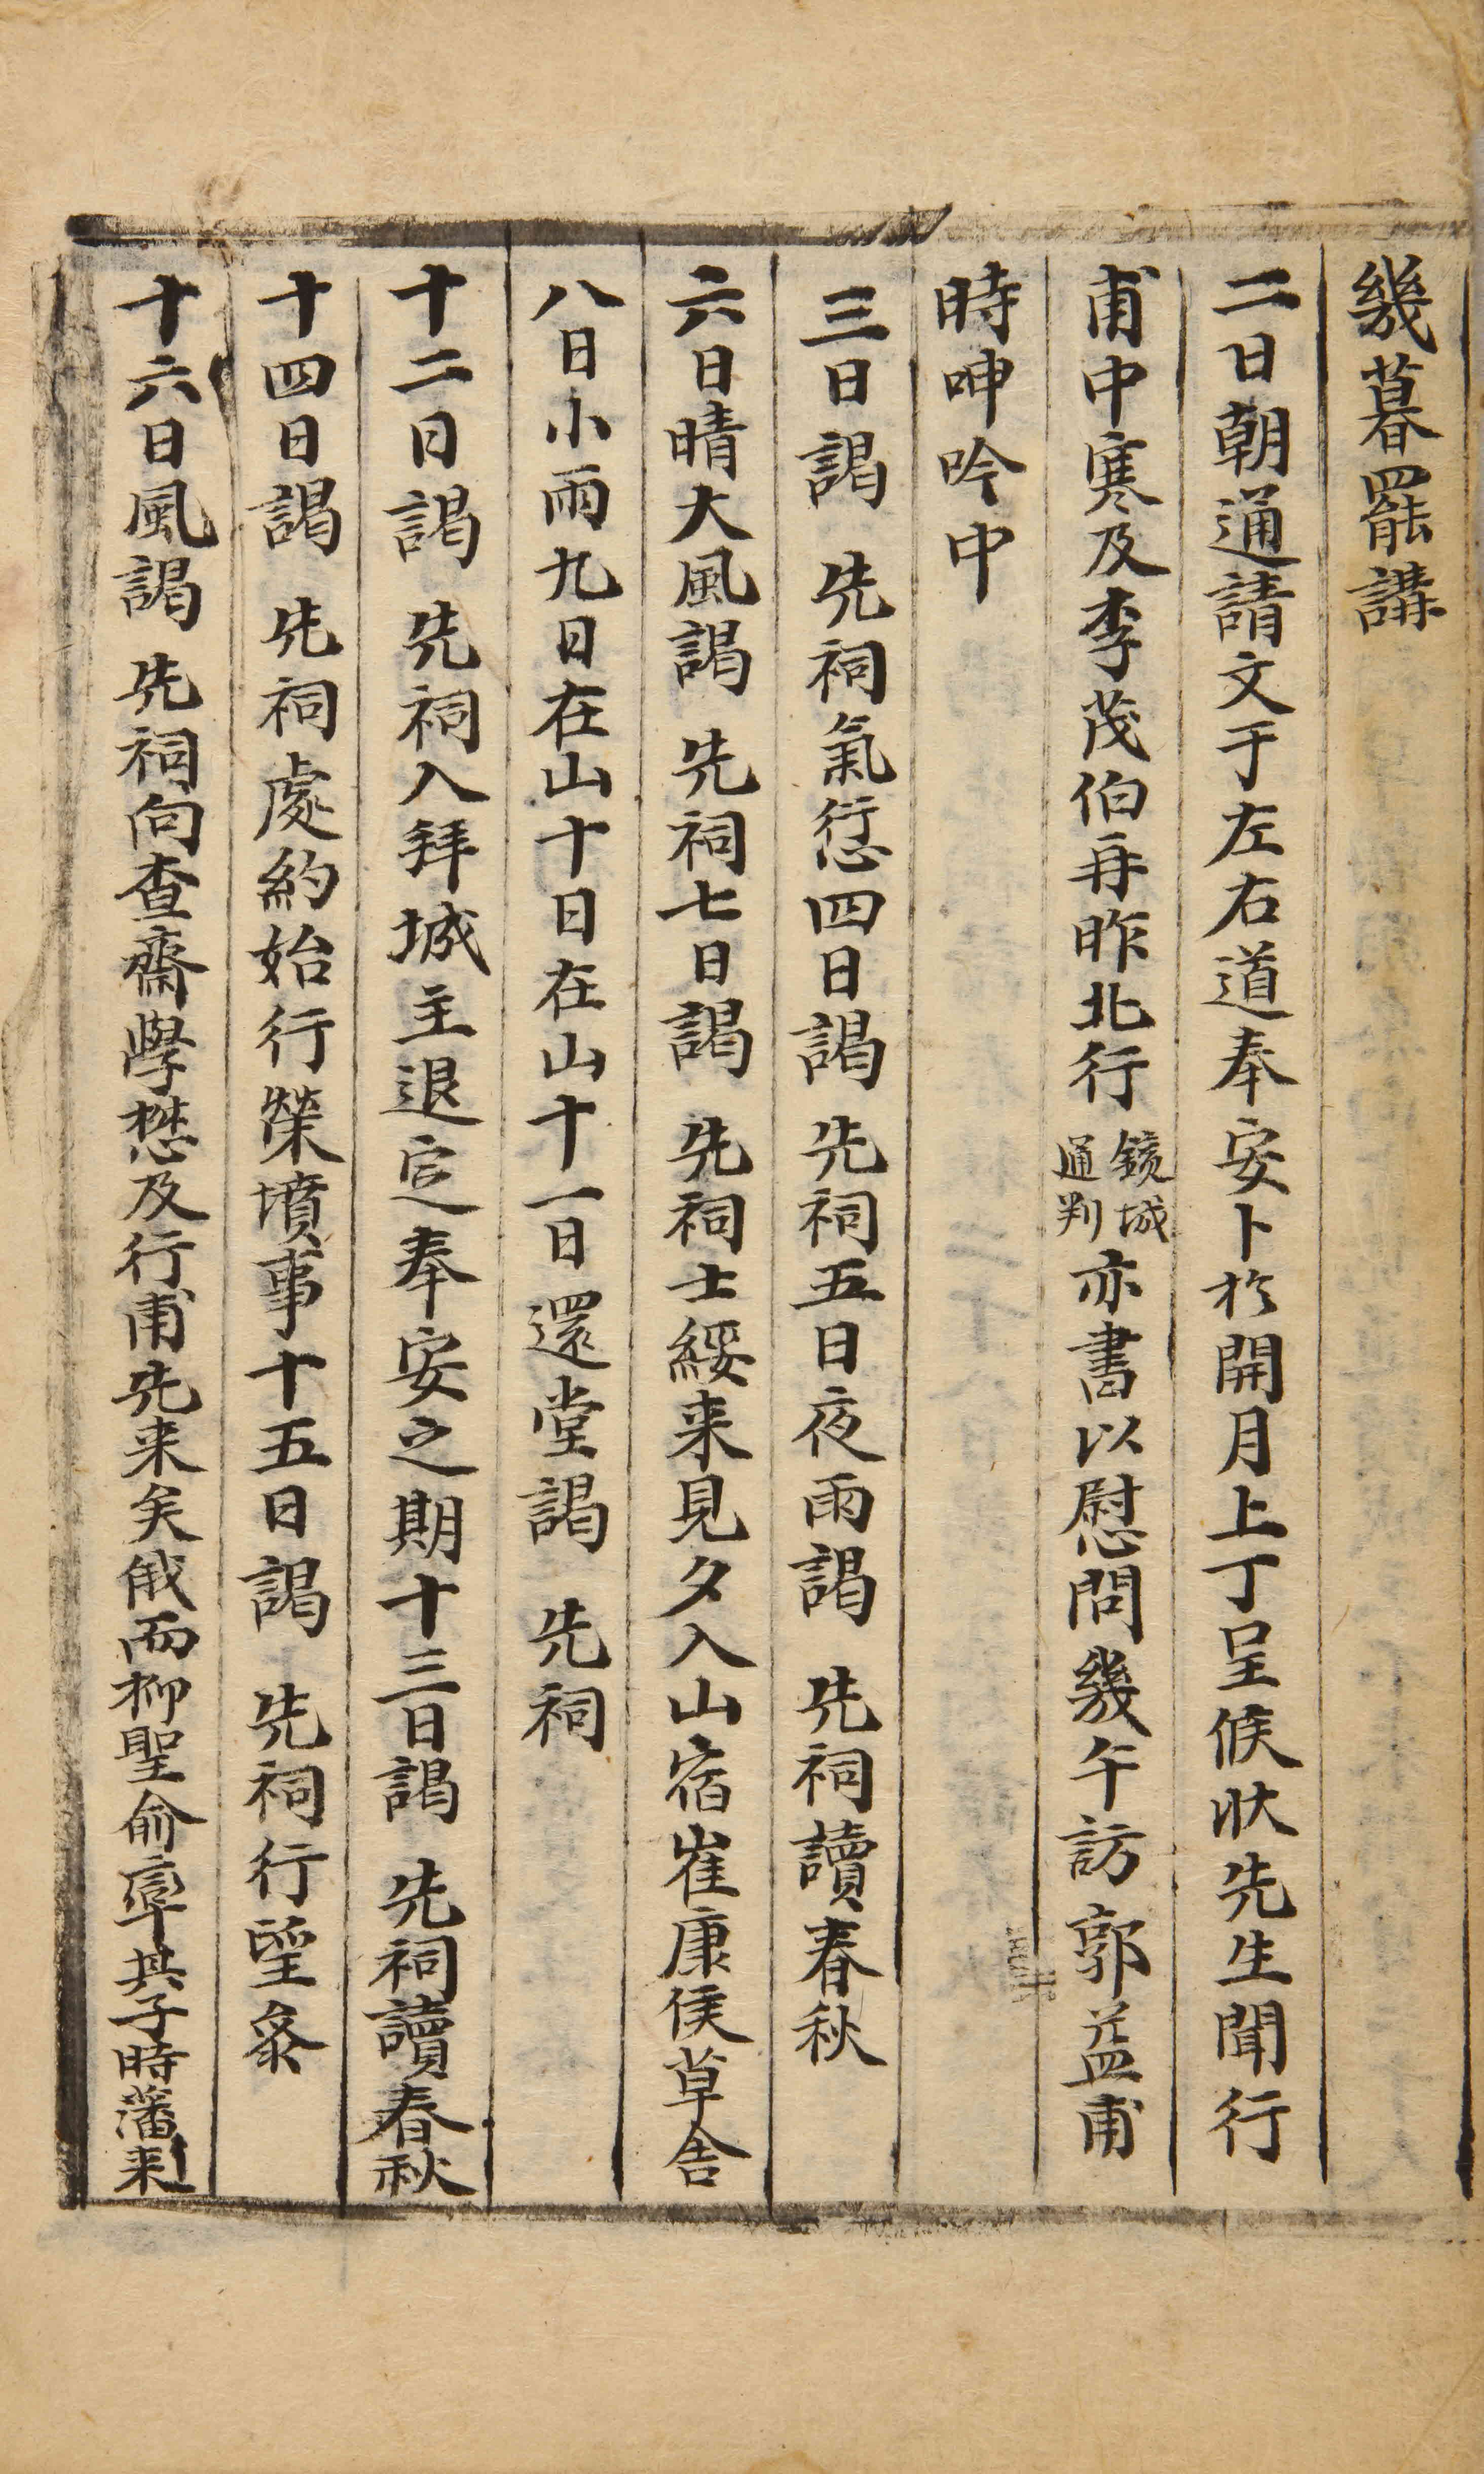 幾暮罷講
二日朝通請文于左右道奉安卜於開月上丁呈候狀先生聞行
甫中寒及李茂伯再昨北行鏡城通判亦書以慰問幾午訪郭益甫
時呻吟中
三日謁 先祠氣愆四日謁 先祠五日夜雨謁 先祠讀春秋
六日晴大風謁 先祠七日謁 先祠士綏来見夕入山宿崔康侯草舍
八日小雨九日在山十日在山十一日還堂謁 先祠
十二日謁 先祠入拜城主退定奉安之期十三日謁 先祠讀春秋
十四日謁 先祠處約始行榮墳事十五日謁 先祠行望叅
十六日風謁 先祠向查齋學懋及行甫先来矣俄而柳聖俞率其子時藩来